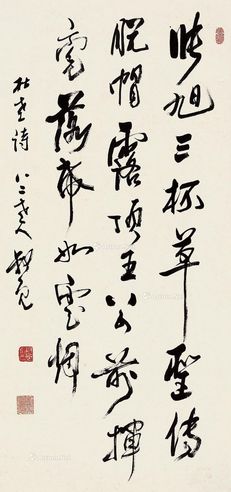 張旭三杯草聖傳
脱帽露頂王公前揮
毫落帋如雲煙
杜老詩 八二老人